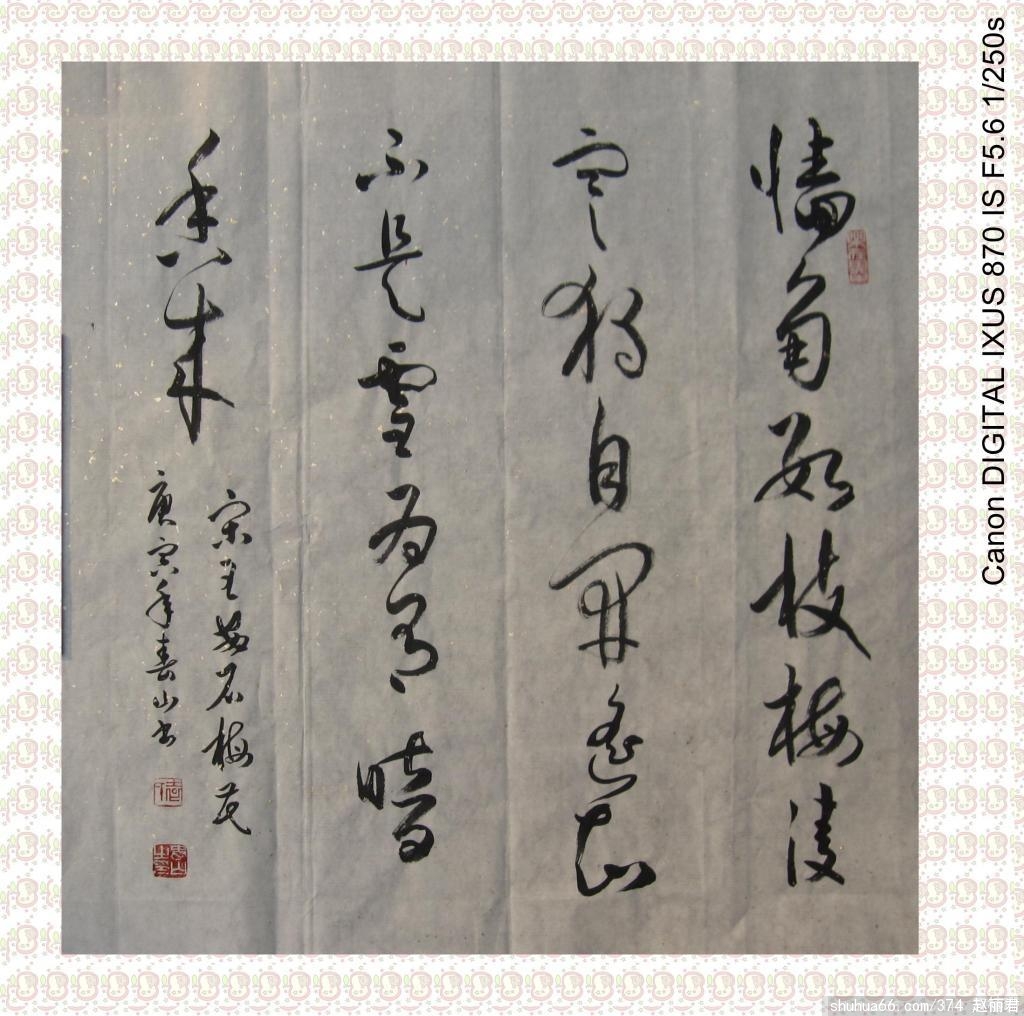 墙角数枝梅凌
寒独自开遥知
不是雪为有暗
香来
宋王安石梅花
庚寅年春山书
Canon DIGITAL IXUS 870 IS F5.6 1/250s
shuhua66.com/374 赵丽君